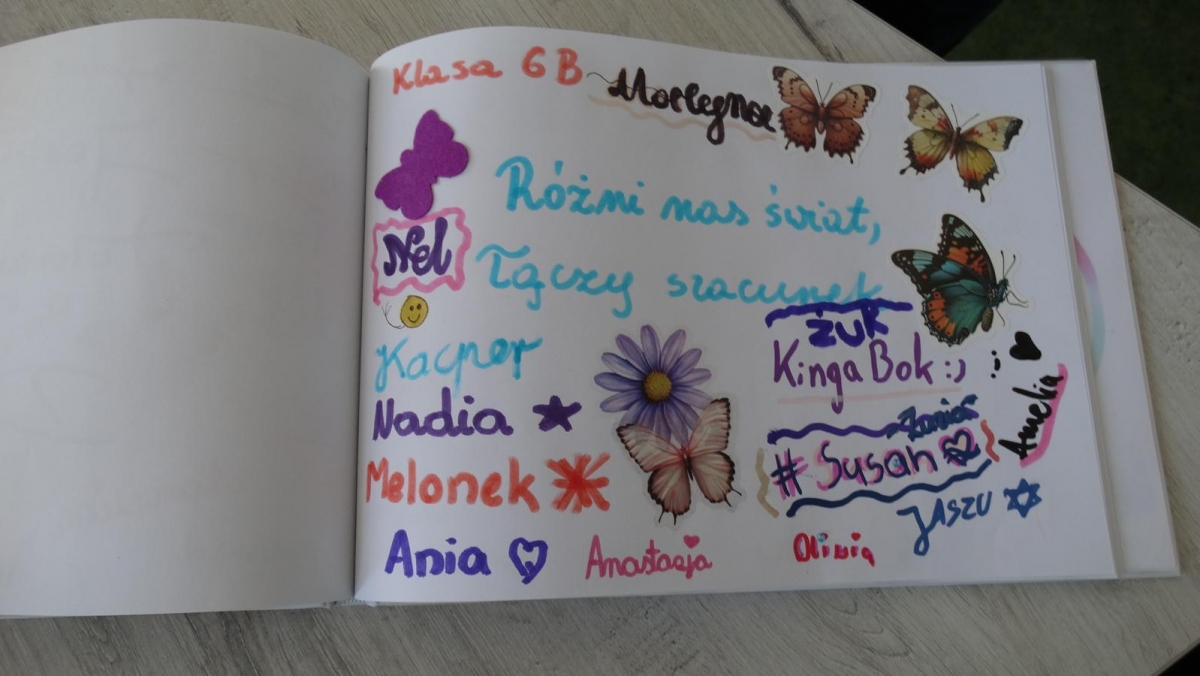 Klasa 6B
Różni nas świat,
Nel
Łączy szacunek
żuk
Kacper
Kinga Bok :)
Amelia
Nadia
# Susan
Melonek
JASZU
Ania
Anastazja
Oliwia